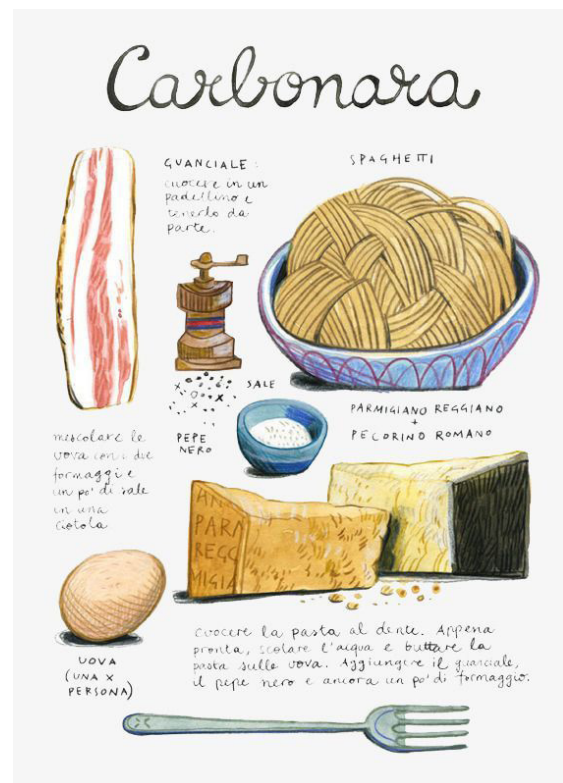 Carbonara
GUANCIALE:
cuocere in un
padellino e
tenerlo da
parte.
SPAGHETTI
SALE
PEPE
NERO
PARMIGIANO REGGIANO
+
PECORINO ROMANO
mescolare le
uova con i due
formaggi e
un po' di sale
in una
ciotola
PARM
REGG
MIGIA
UOVA
(UNA X
PERSONA)
Cuocere la pasta al dente. Appena
pronta, scolare l'acqua e buttare la
pasta sulle uova. Aggiungere il guanciale,
il pepe nero e ancora un po' di formaggio.